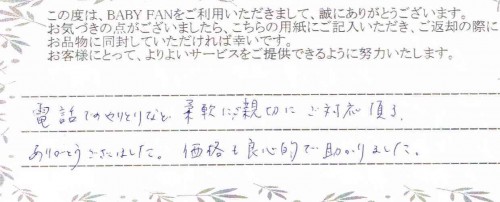 この度は、BABY FANをご利用いただきまして、誠にありがとうございます。
お気づきの点がございましたら、こちらの用紙にご記入いただき、ご返却の際に
お品物に同封していただければ幸いです。
お客様にとって、よりよいサービスをご提供できるように努力いたします。
電話でのやりとりなど 柔軟にご親切に ご対応頂き、
ありがとうございました。 価格も良心的で助かりました。